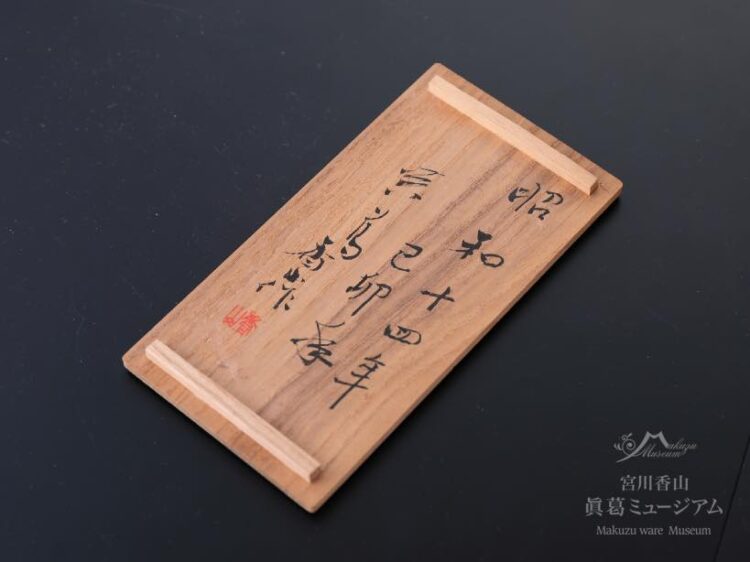 昭和十四年
己卯
眞葛香山作
香山
Makuzu
Museum
宮川香山
眞葛ミュージアム
Makuzu ware Museum